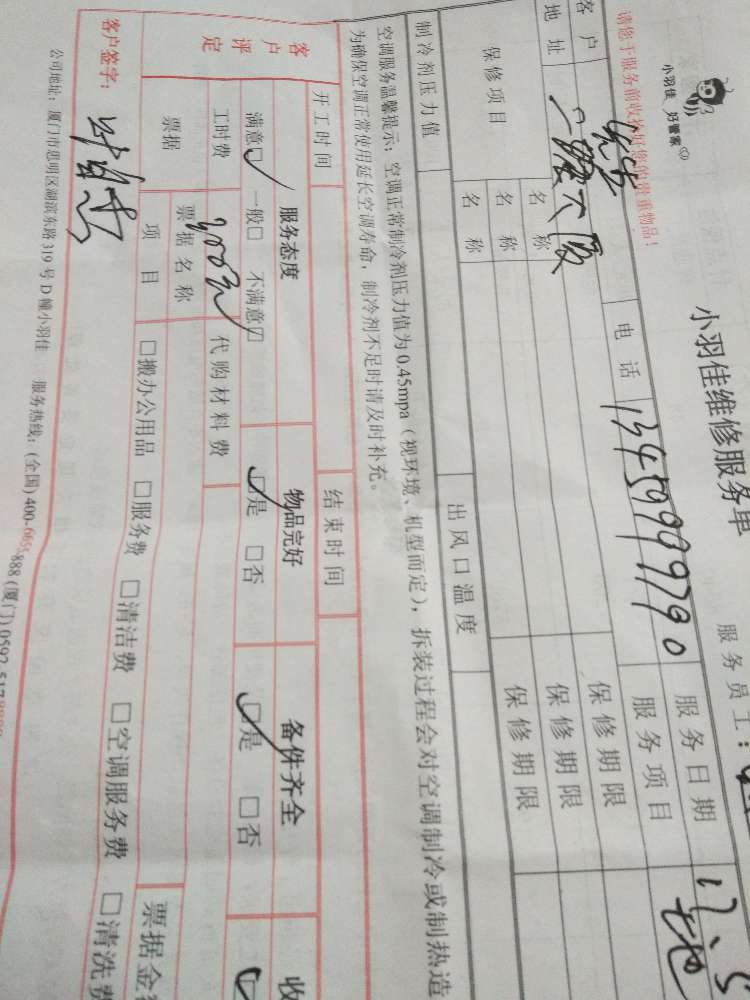 小羽佳 好管家
小羽佳维修服务单
请您于服务前收拾好您的贵重物品!
服务员工:
客户 电话 13459999790 服务日期 17.5
地址 大厦 服务项目 地
保修项目 名称 保修期限
名称 保修期限
名称 保修期限
制冷剂压力值 出风口温度
空调服务温馨提示:空调正常制冷剂压力值为0.45mpa(视环境、机型而定),拆装过程会对空调制冷或制热造
为确保空调正常使用延长空调寿命,制冷剂不足时请及时补充。
开工时间 结束时间
客户评定 服务态度 物品完好 备件齐全 收
满意□ 一般□ 不满意□ □是 □否 □是 □否 □
工时费 300元 代购材料费
票据 票据名称 票据金
项目 □搬办公用品 □服务费 □清洁费 □空调服务费 □清洗费
客户签字:
公司地址:厦门市思明区湖滨东路319号D幢小羽佳 服务热线:(全国)400-666-888(厦门)0592-517